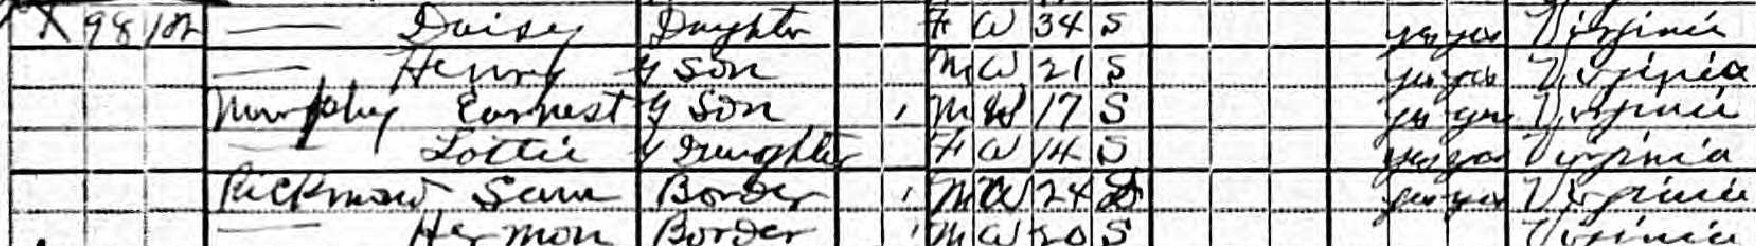 X 98 102 — Daisy Daughter F W 34 S yes yes Virginia
— Henry G Son M W 21 S yes yes Virginia
Murphy Earnest G Son M W 17 S yes yes Virginia
— Lottie G Daughter F W 14 S yes yes Virginia
Sam Border M W 24 yes yes Virginia
— Hermon Border M W 20 S Virginia